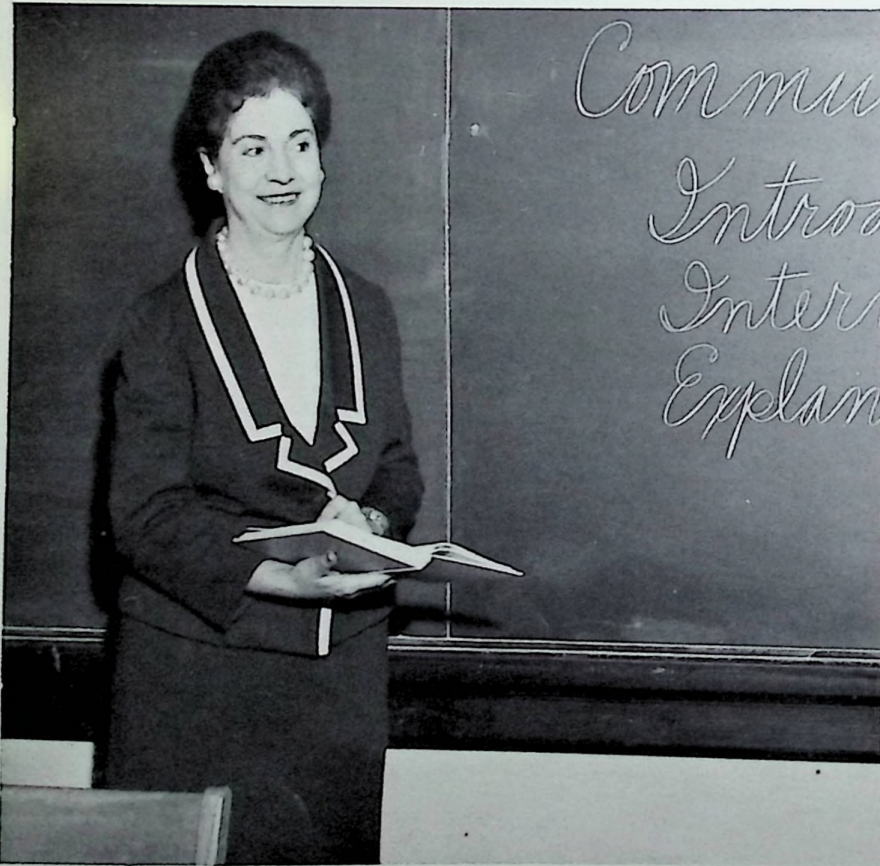 Commu
Introd
Inter
Explan